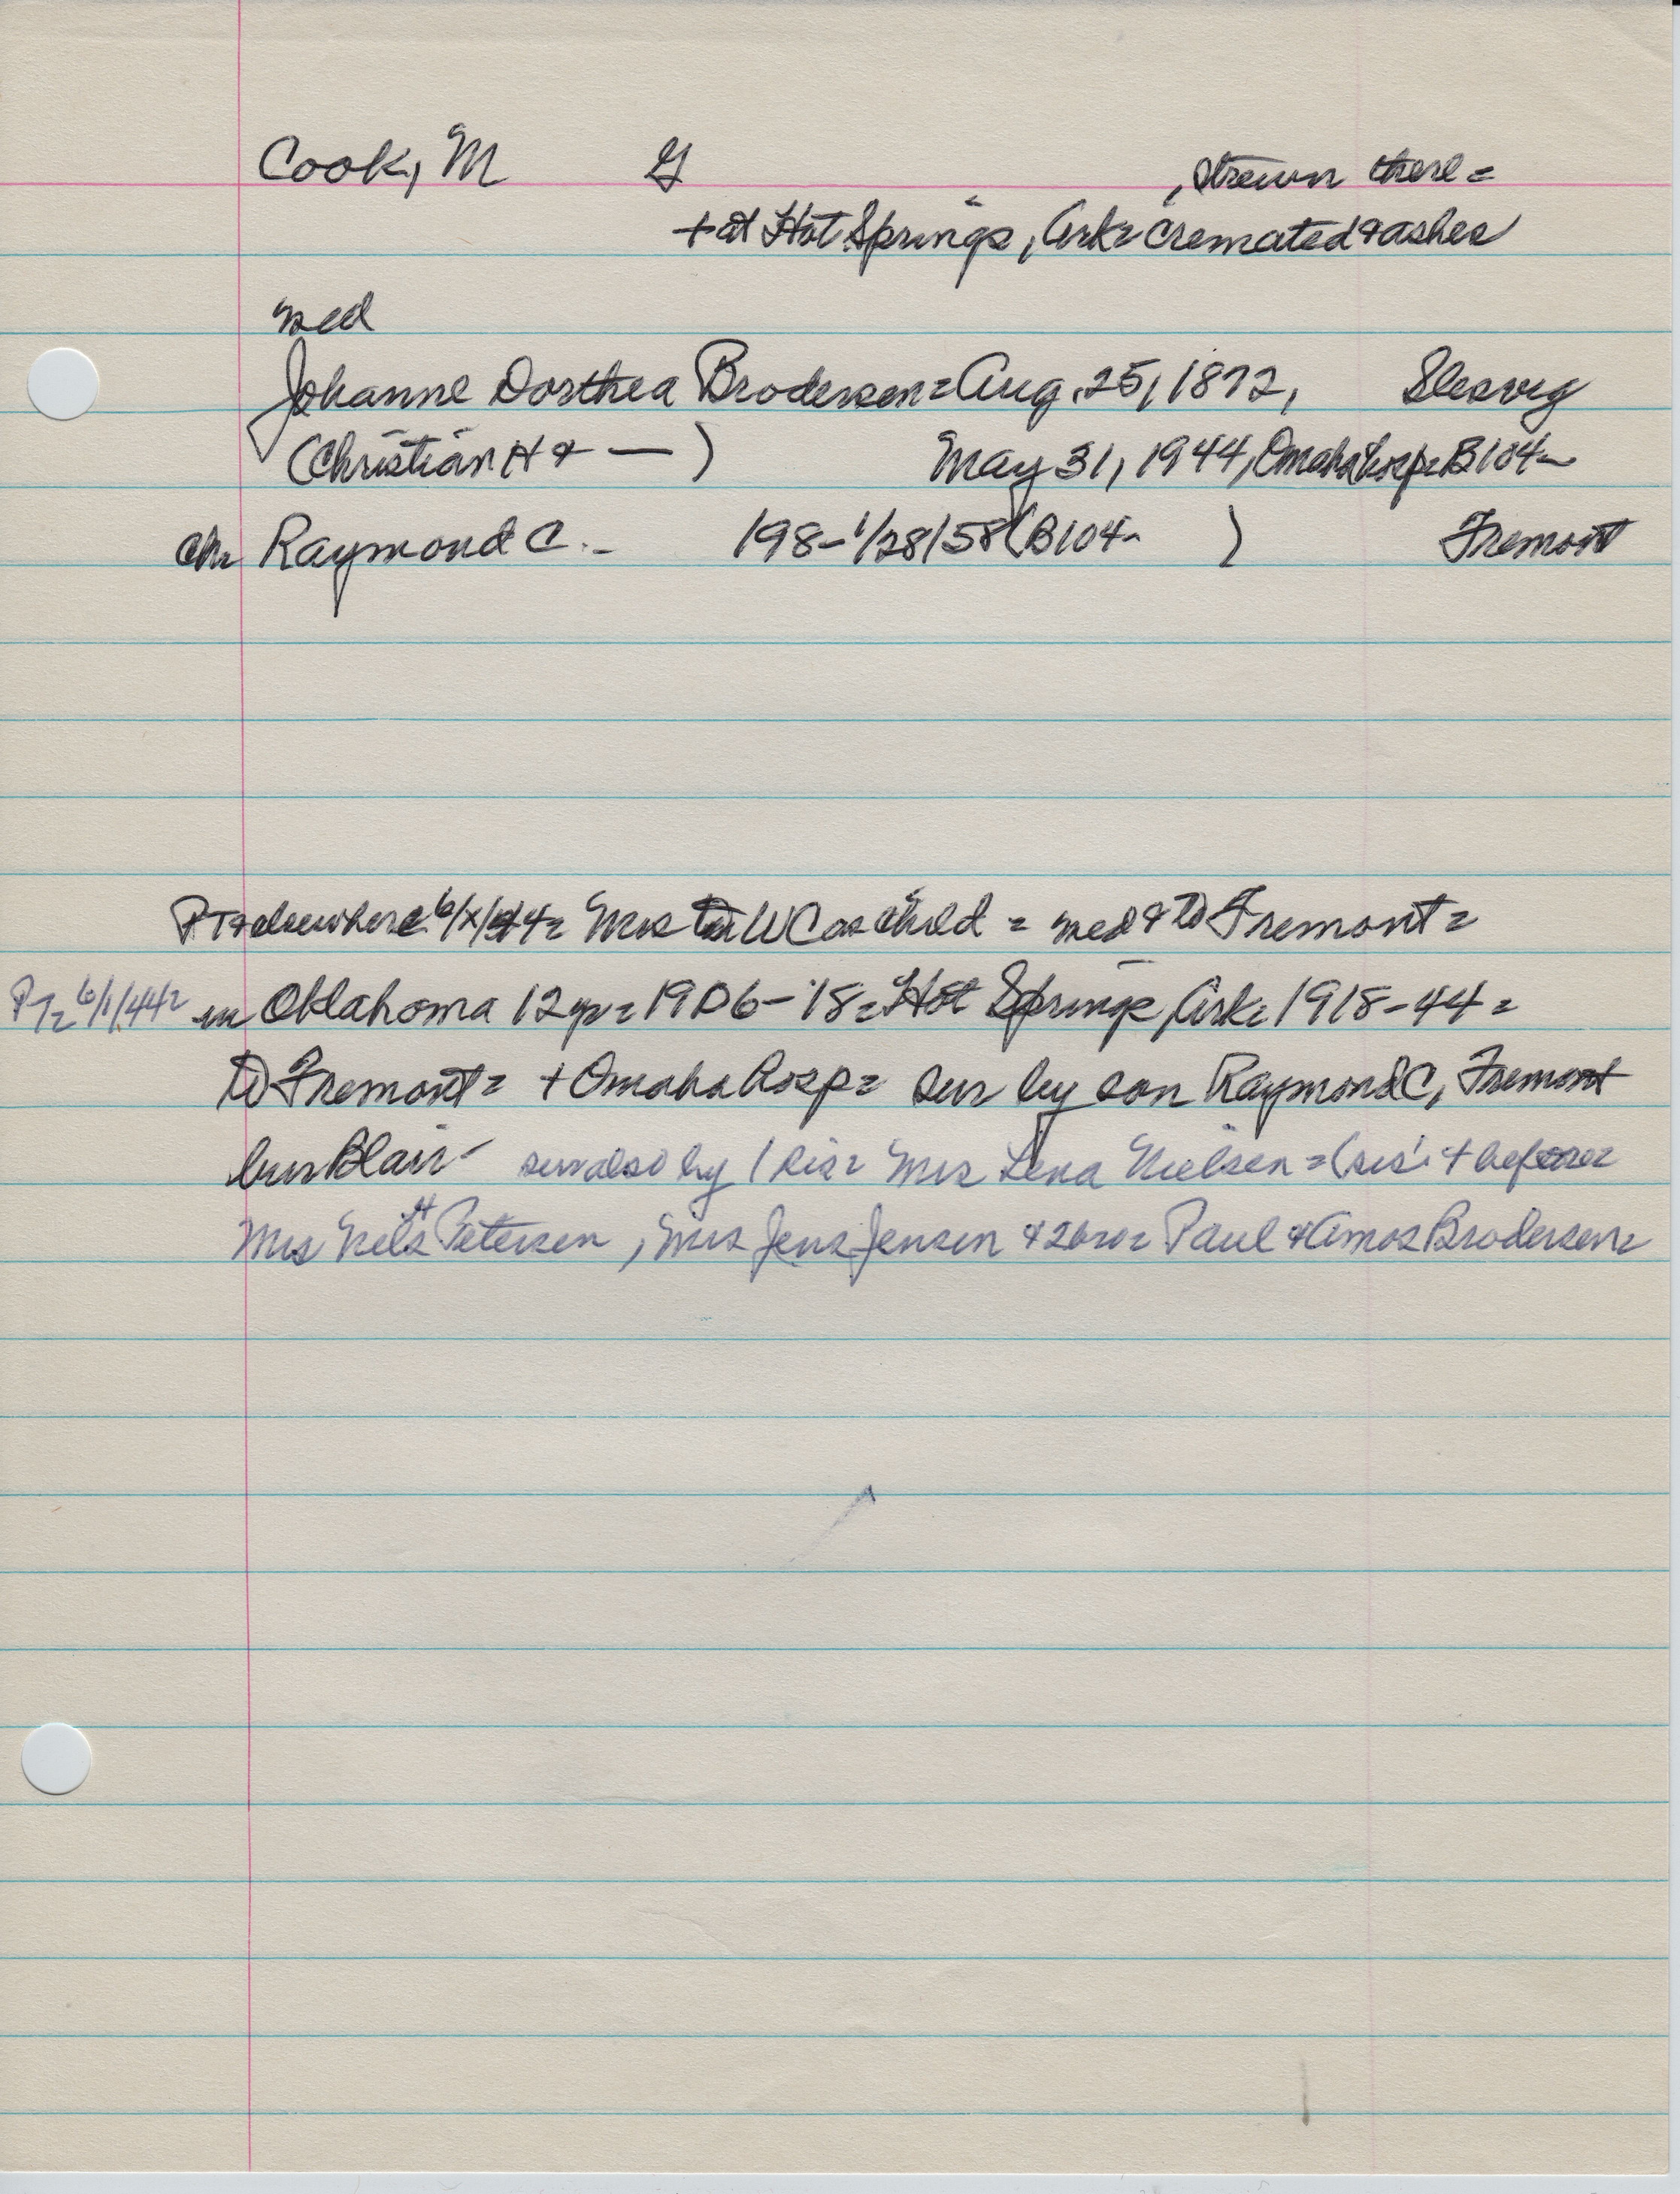 Cook, M G
, strewn there =
+ at Hot Springs, Ark = cremated & ashes
med
Johanne Dorthea Brodersen = Aug. 25, 1872, Slesvig
(Christian H & — ) May 31, 1944, Omaha hosp = B104-
ch = Raymond C. - 198-1/28/58 (B104- ) Fremont
PT & elsewhere 6/x/44 = Mrs to WC as child = med & to Fremont =
PT = 6/1/44 = in Oklahoma 12 yr = 1906-'18 = Hot Springs, Ark = 1918-44 =
to Fremont = + Omaha hosp = sur by son Raymond C, Fremont
bur Blair - sur also by 1 sis = Mrs Lena Nielsen = (sis: + before =
Mrs Nels H Petersen, Mrs Jens Jensen & 2 bro = Paul & Amos Brodersen =